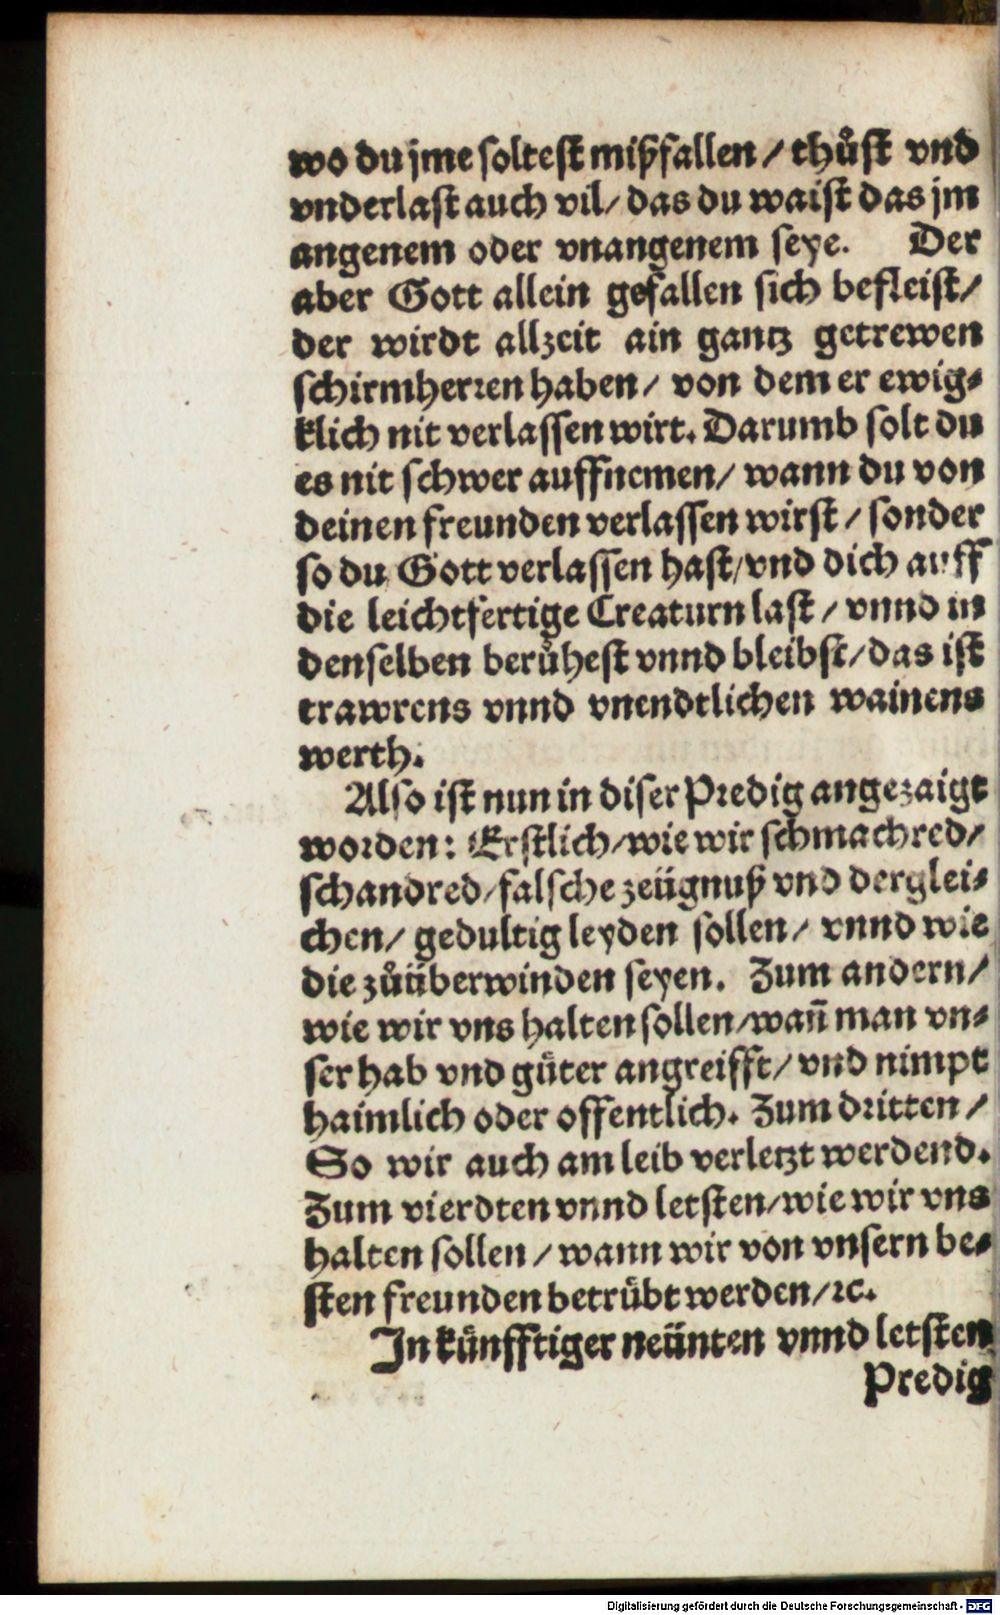 wo du jme soltest mißfallen / thůst vnd
vnderlast auch vil / das du waist das jm
angenem oder vnangenem seye. Der
aber Gott allein gefallen sich befleist /
der wirdt allzeit ain gantz getrewen
schirmherren haben / von dem er ewig⸗
klich nit verlassen wirt. Darumb solt du
es nit schwer auffnemen / wann du von
deinen freunden verlassen wirst / sonder
so du Gott verlassen hast / vnd dich auff
die leichtfertige Creaturn last / vnnd in
denselben berůhest vnnd bleibst / das ist
trawrens vnnd vnendtlichen wainens
werth.
Also ist nun in diser Predig angezaigt
worden: Erstlich / wie wir schmachred /
schandred / falsche zeügnuß vnd derglei⸗
chen / gedultig leyden sollen / vnnd wie
die zůüberwinden seyen. Zum andern /
wie wir vns halten sollen / wañ man vn⸗
ser hab vnd güter angreifft / vnd nimpt
haimlich oder offentlich. Zum dritten /
So wir auch am leib verletzt werdend.
Zum vierdten vnnd letsten / wie wir vns
halten sollen / wann wir von vnsern be⸗
sten freunden betrübt werden / ꝛc.
In künfftiger neünten vnnd letsten
Predig
Digitalisierung gefördert durch die Deutsche Forschungsgemeinschaft - DFG